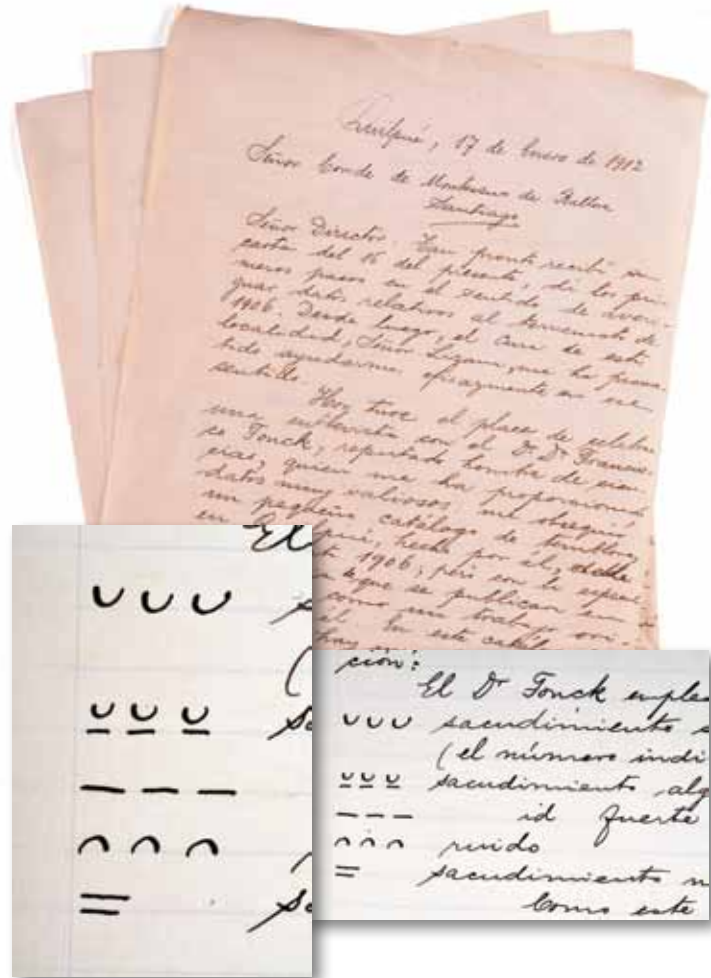 Quilpué, 17 de Enero de 1912
Señor Conde de Montessus de Ballore
Santiago
Señor Director. Tan pronto recibí su
carta del 16 del presente, dí los pri-
meros pasos en el sentido de averi-
guar datos relativos al terremoto de
1906. Desde luego, el Cura de esta
localidad, Señor me ha prome-
tido ayudarme eficazmente en ese
sentido.
Hoy tuve el placer de celebrar
una entrevista con el Dr. Dn. Francis-
co Fonck, reputado hombre de cien-
cias, quien me ha proporcionado
datos muy valiosos i me obsequió
un pequeño catálogo de temblores
en Quilpué, hecho por él, desde
1906; pero con la
que se publican
como un trabajo ori-
En este catál
El
◡ ◡ ◡ s
(
◡ ◡ ◡ sa
— — —
◠ ◠ ◠
= sa
ción:
El Dr Fonck emplea
◡◡◡ sacudimiento s
(el número indi
◡◡◡ sacudimiento alg
— — — id fuerte
◠◠◠ ruido
= sacudimiento m
Como este